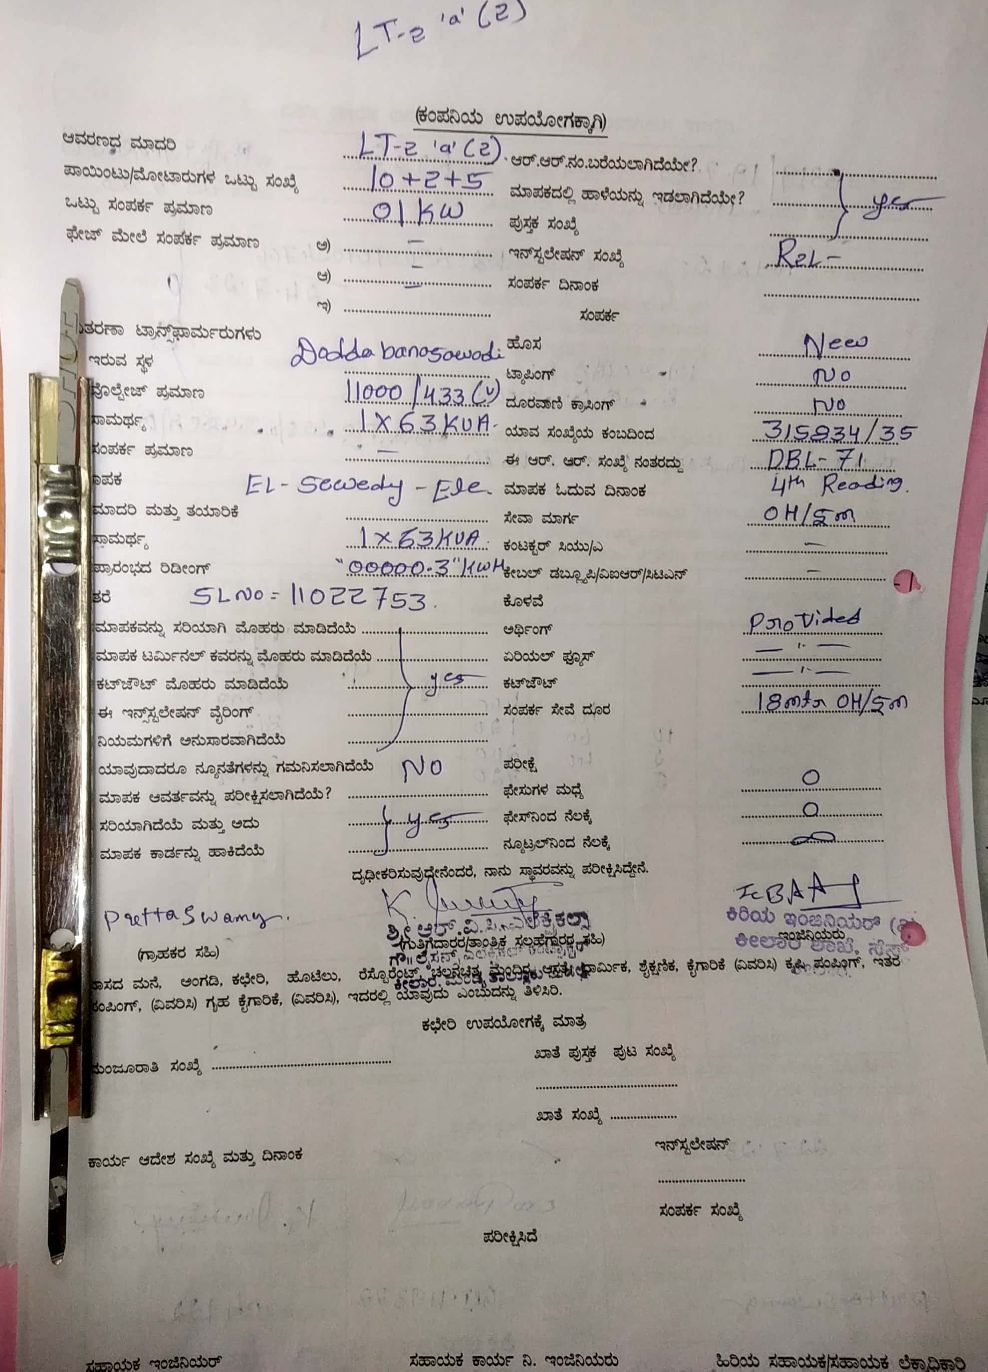 LT-2 'a' (2)
(ಕಂಪನಿಯ ಉಪಯೋಗಕ್ಕಾಗಿ)
ಆವರಣದ ಮಾದರಿ LT-2 'a' (2) ಆರ್.ಆರ್.ನಂ.ಬರೆಯಲಾಗಿದೆಯೇ?
ಪಾಯಿಂಟು/ಮೋಟಾರುಗಳ ಒಟ್ಟು ಸಂಖ್ಯೆ 10+2+5 ಮಾಪಕದಲ್ಲಿ ಹಾಳೆಯನ್ನು ಇಡಲಾಗಿದೆಯೇ? yes
ಒಟ್ಟು ಸಂಪರ್ಕ ಪ್ರಮಾಣ 01 KW ಪುಸ್ತಕ ಸಂಖ್ಯೆ
ಫೇಜ್ ಮೇಲೆ ಸಂಪರ್ಕ ಪ್ರಮಾಣ ಅ) — ಇನ್‌ಸ್ಟಲೇಷನ್ ಸಂಖ್ಯೆ R2L-
ಆ) — ಸಂಪರ್ಕ ದಿನಾಂಕ
ಇ) ಸಂಪರ್ಕ
ತರಣಾ ಟ್ರಾನ್ಸ್‌ಫಾರ್ಮರುಗಳು
ಇರುವ ಸ್ಥಳ Doddabanasawadi ಹೊಸ New
ಟ್ಯಾಪಿಂಗ್ NO
ವೋಲ್ಟೇಜ್ ಪ್ರಮಾಣ 11000/433(V) ದೂರವಾಣಿ ಕ್ರಾಸಿಂಗ್ NO
ಸಾಮರ್ಥ್ಯ 1X63KVA ಯಾವ ಸಂಖ್ಯೆಯ ಕಂಬದಿಂದ 315234/35
ಸಂಪರ್ಕ ಪ್ರಮಾಣ — ಈ ಆರ್. ಆರ್. ಸಂಖ್ಯೆ ನಂತರದ್ದು DBL-71
ಾಪಕ EL-Sewedy-Ele ಮಾಪಕ ಓದುವ ದಿನಾಂಕ 4th Reading.
ಮಾದರಿ ಮತ್ತು ತಯಾರಿಕೆ ಸೇವಾ ಮಾರ್ಗ OH/sm
ಸಾಮರ್ಥ್ಯ 1X63KVA ಕಂಟಕ್ಟರ್ ಸಿಯು/ಎ —
ಪ್ರಾರಂಭದ ರಿಡೀಂಗ್ "00000.3"KWH ಕೇಬಲ್ ಡಬ್ಲ್ಯೂಪಿ/ವಿಐಆರ್/ಸಿಟಿಎಸ್ —
ತರೆ SLNO = 11022753. ಕೊಳವೆ
ಮಾಪಕವನ್ನು ಸರಿಯಾಗಿ ಮೊಹರು ಮಾಡಿದೆಯೆ ಅರ್ಥಿಂಗ್ Provided
ಮಾಪಕ ಟರ್ಮಿನಲ್ ಕವರನ್ನು ಮೊಹರು ಮಾಡಿದೆಯೆ ಏರಿಯಲ್ ಫ್ಯೂಸ್ — " —
ಕಟ್‌ಜೌಟ್ ಮೊಹರು ಮಾಡಿದೆಯೆ yes ಕಟ್‌ಜೌಟ್ — " —
ಈ ಇನ್‌ಸ್ಟಲೇಷನ್ ವೈರಿಂಗ್ ಸಂಪರ್ಕ ಸೇವೆ ದೂರ 18mtr OH/sm
ನಿಯಮಗಳಿಗೆ ಅನುಸಾರವಾಗಿದೆಯೆ
ಯಾವುದಾದರೂ ನ್ಯೂನತೆಗಳನ್ನು ಗಮನಿಸಲಾಗಿದೆಯೆ NO ಪರೀಕ್ಷೆ
ಮಾಪಕ ಆವರ್ತವನ್ನು ಪರೀಕ್ಷಿಸಲಾಗಿದೆಯೆ? ಫೇಸುಗಳ ಮಧ್ಯೆ 0
ಸರಿಯಾಗಿದೆಯೆ ಮತ್ತು ಅದು yes ಫೇಸ್‌ನಿಂದ ನೆಲಕ್ಕೆ 0
ಮಾಪಕ ಕಾರ್ಡನ್ನು ಹಾಕಿದೆಯೆ ನ್ಯೂಟ್ರಲ್‌ನಿಂದ ನೆಲಕ್ಕೆ
ದೃಢೀಕರಿಸುವುದೇನೆಂದರೆ, ನಾನು ಸ್ಥಾವರವನ್ನು ಪರೀಕ್ಷಿಸಿದ್ದೇನೆ.
PuttaSwamy.
ಶ್ರೀ ಆರ್.ವಿ.ಸಿ. ಎಲೆಕ್ಟ್ರಿಕಲ್ಸ್ ಕಿರಿಯ ಇಂಜಿನಿಯರ್
(ಗ್ರಾಹಕರ ಸಹಿ) (ಗುತ್ತಿಗೆದಾರರ/ತಾಂತ್ರಿಕ ಸಲಹೆಗಾರರ ಸಹಿ) ಇಂಜಿನಿಯರು
ಕೀಲಾರ ಶಾಖೆ,
ಾಸದ ಮನೆ, ಅಂಗಡಿ, ಕಛೇರಿ, ಹೊಟೆಲು, ರೆಸ್ಟೊರೆಂಟ್, ಚಲನಚಿತ್ರ ಮಂದಿರ, ಆಸ್ಪತ್ರೆ, ಧಾರ್ಮಿಕ, ಶೈಕ್ಷಣಿಕ, ಕೈಗಾರಿಕೆ (ವಿವರಿಸಿ) ಕೃಷಿ ಪಂಪಿಂಗ್, ಇತರೆ
ಪಂಪಿಂಗ್, (ವಿವರಿಸಿ) ಗೃಹ ಕೈಗಾರಿಕೆ, (ವಿವರಿಸಿ), ಇದರಲ್ಲಿ ಯಾವುದು ಎಂಬುದನ್ನು ತಿಳಿಸಿರಿ.
ಕಛೇರಿ ಉಪಯೋಗಕ್ಕೆ ಮಾತ್ರ
ಮಂಜೂರಾತಿ ಸಂಖ್ಯೆ ಖಾತೆ ಪುಸ್ತಕ ಪುಟ ಸಂಖ್ಯೆ
ಖಾತೆ ಸಂಖ್ಯೆ
ಇನ್‌ಸ್ಟಲೇಷನ್
ಕಾರ್ಯ ಆದೇಶ ಸಂಖ್ಯೆ ಮತ್ತು ದಿನಾಂಕ
ಸಂಪರ್ಕ ಸಂಖ್ಯೆ
ಪರೀಕ್ಷಿಸಿದೆ
ಸಹಾಯಕ ಇಂಜಿನಿಯರ್ ಸಹಾಯಕ ಕಾರ್ಯ ನಿ. ಇಂಜಿನಿಯರು ಹಿರಿಯ ಸಹಾಯಕ/ಸಹಾಯಕ ಲೆಕ್ಕಾಧಿಕಾರಿ